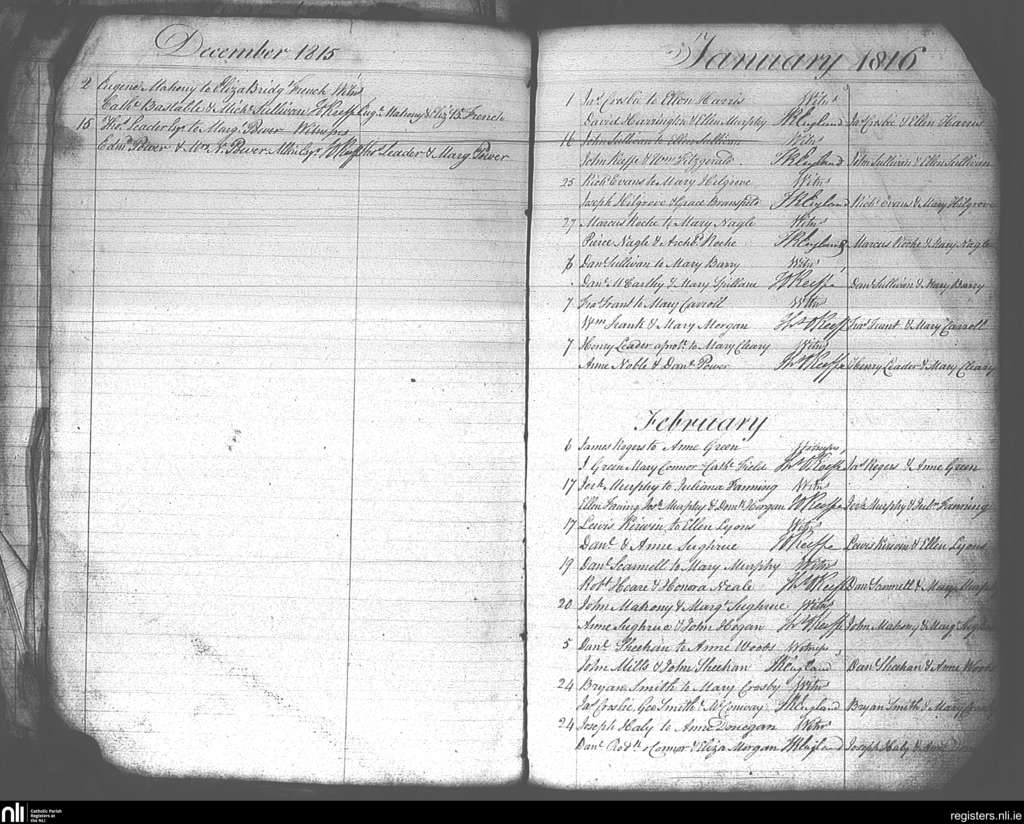 December 1815
2 Eugene Mahony to Eliza Bridgt French Witns
Cathe Bastable & Michl Sullivan Eugn Mahony & Eliz French
15 Thos Leader Esqr to Margt Power Witnesses
Edmd Power & Power Esqr Thos Leader & Marg Power
January 1816
1 Jas Crosbie to Ellen Harris Witns
David Harrington & Ellen Murphy TREngland Jas Crosbie & Ellen Harris
16 John Sullivan to Ellen Sullivan Witns
John Keeffe & Wm Fitzgerald TREngland John Sullivan & Ellen Sullivan
25 Richd Evans to Mary Hilgrove Witns
Joseph Hilgrove & Grace Bransfield TREngland Richd Evans & Mary Hilgrove
27 Marcus Roche to Mary Nagle Witns
Pierce Nagle & Archd Roche TREngland Marcus Roche & Mary Nagle
6 Danl Sullivan to Mary Barry Witns
Danl McCarthy & Mary Spillane OKeeffe Danl Sullivan & Mary Barry
7 Jas Frant to Mary Carroll Witns
Wm Frank & Mary Morgan Ths OKeeffe Frant & Mary Carroll
7 Henry Leader to Mary Cleary Witns
Anne Noble & Danl Power Ths OKeeffe Henry Leader & Mary Cleary
February
6 James Rogers to Anne Green Witnesses
J Green Mary Connor Cathe Field Ths OKeeffe Jas Rogers & Anne Green
17 Jerh Murphy to Juliana Fanning Witns
Ellen Faning Josh Murphy & Horgan OKeeffe Jerh Murphy & Fanning
17 Lewis Kirwin to Ellen Lyons Witns
Danl & Anne Sughrue OKeeffe Lewis Kirwin & Ellen Lyons
19 Danl Scannell to Mary Murphy Witns
Robt Hoare & Honora Neale Ths OKeeffe Danl Scannell & Mary
20 John Mahony & Margt Sughrue Witns
Anne Sughrue & John Hogan Ths OKeeffe John Mahony & Margt
5 Danl Sheehan to Anne Woods Witness
John Mills & John Sheehan TREngland Danl Sheehan & Anne Woods
24 Bryan Smith to Mary Crosby Witns
Jas Crosbie, Geo Smith & McConway TREngland Bryan Smith & Mary
24 Joseph Haly to Anne Donegan Witns
Danl Connor & Eliza Morgan TREngland Joseph Haly & Anne
nli
Catholic Parish
Registers at
the NLI
registers.nli.ie